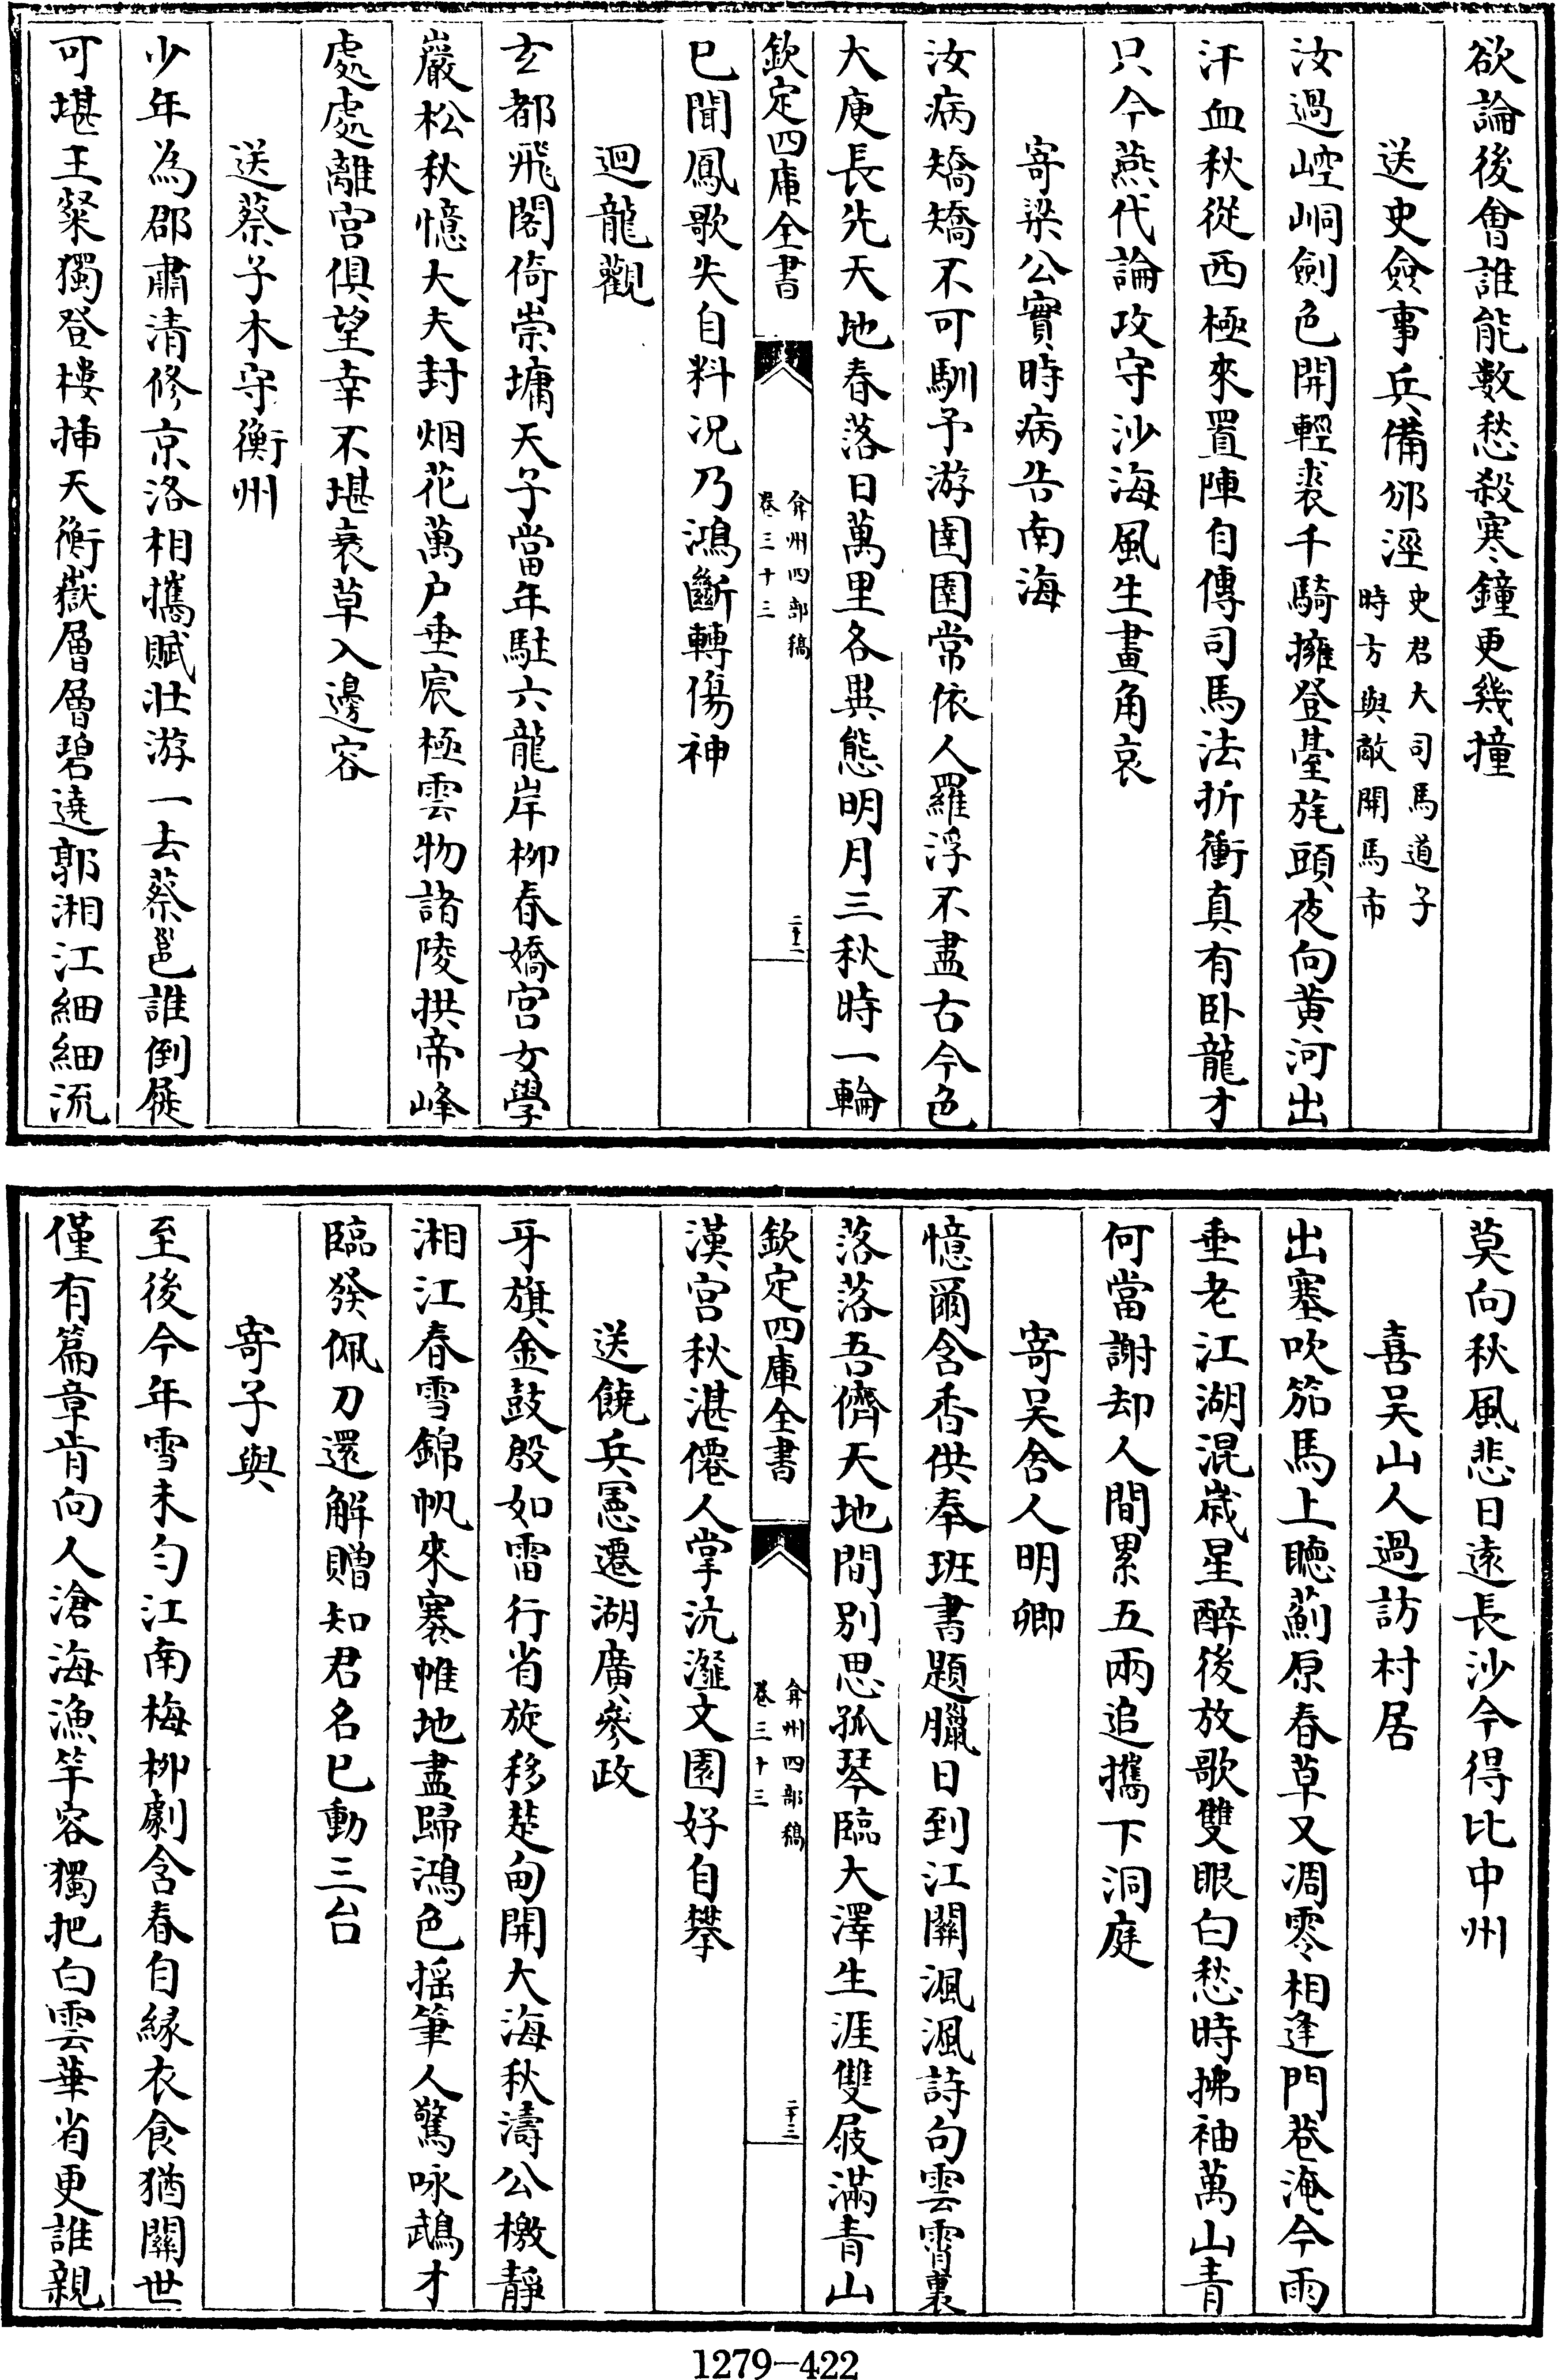 欲論後會誰能數愁殺寒鐘更幾撞
送史僉事兵備邠涇史君大司馬道子
時方與敵開馬市
汝過崆峒劍色開輕裘千騎擁登臺旄頭夜向黃河出
汗血秋從西極來置陣自傳司馬法折衝真有卧龍才
只今燕代論攻守沙海風生畫角哀
寄梁公實時病告南海
汝病矯矯不可馴予游圉圉常依人羅浮不盡古今色
大庾長先天地春落日萬里各異態明月三秋時一輪
欽定四庫全書
弇州四部稿
卷三十三
二十二
已聞鳳歌失自料况乃鴻斷轉傷神
迴龍觀
玄都飛閣倚崇墉天子當年駐六龍岸柳春嬌宮女學
巖松秋憶大夫封烟花萬户垂宸極雲物諸陵拱帝峰
處處離宮俱望幸不堪衰草入邊容
送蔡子木守衡州
少年為郡肅清修京洛相攜賦壯游一去蔡邕誰倒屣
可堪王粲獨登樓揷天衡嶽層層碧遶郭湘江細細流
莫向秋風悲日遠長沙今得比中州
喜吴山人過訪村居
出塞吹笳馬上聽薊原春草又凋零相逢門巷淹今雨
垂老江湖混歲星醉後放歌雙眼白愁時拂袖萬山青
何當謝却人間累五兩追攜下洞庭
寄吴舍人明卿
憶爾含香供奉班書題臘日到江關渢渢詩句雲霄裏
落落吾儕天地間别思孤琴臨大澤生涯雙屐滿青山
欽定四庫全書
弇州四部稿
卷三十三
二十三
漢宮秋湛僊人掌沆瀣文園好自攀
送饒兵憲遷湖廣參政
牙旗金鼓殷如雷行省旋移楚甸開大海秋濤公檄靜
湘江春雪錦帆來褰帷地盡歸鴻色揺筆人驚咏鵡才
臨發佩刀還解贈知君名已動三台
寄子與
至後今年雪未匀江南梅柳劇含春自緣衣食猶關世
僅有篇章肯向人滄海漁竿容獨把白雲華省更誰親
1279-422